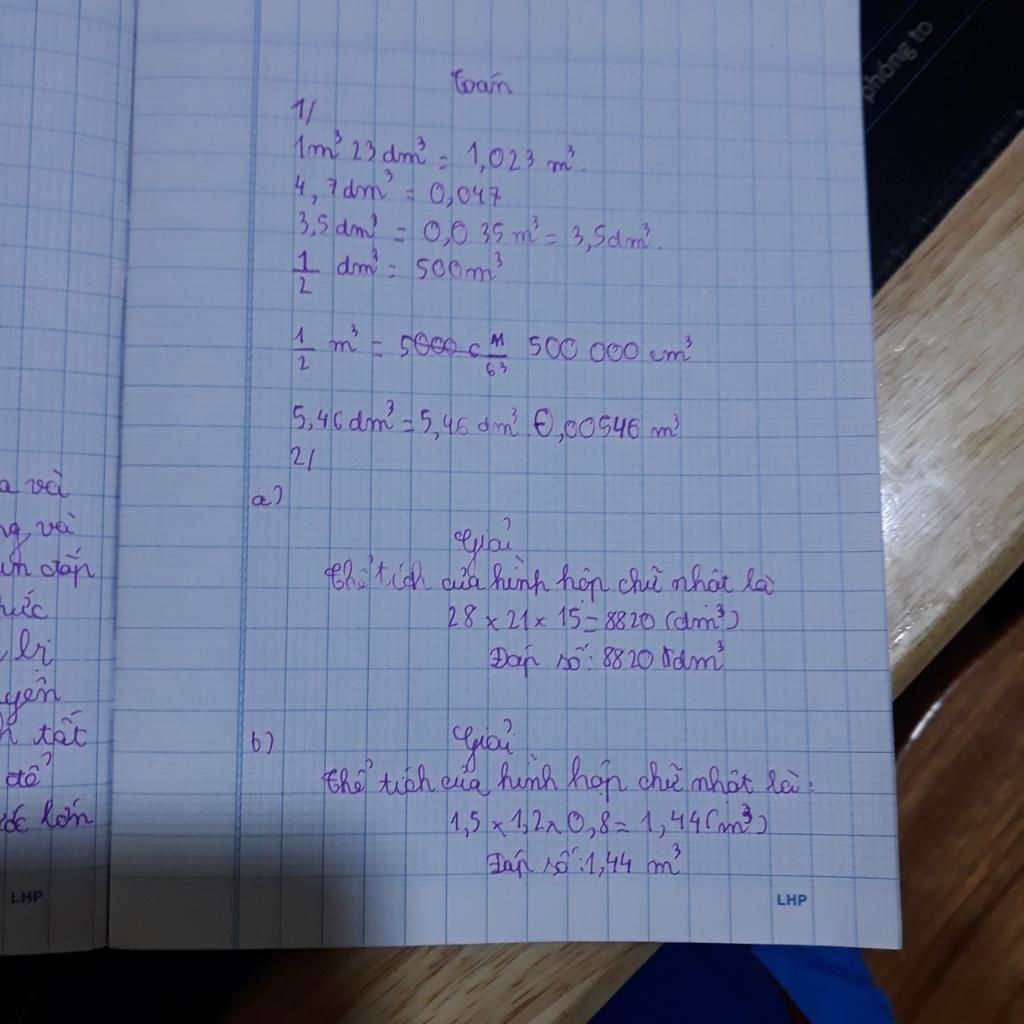 a và
ng, và
nh đắp
nước
, lị
yện
h tất
đồ
lớn
LHP
toán
1/
1m³ 23 dm³ = 1,023 m³.
4,7dm³ = 0,047
3,5dm³ = 0,035m³ = 3,5dm³.
1/2 dm³ = 500m³
1/2 m³ = 500 000 cm³
5,46dm³ = 5,46 dm³ 0,00546 m³
2/
a)
Giải
thể tích của hình hộp chữ nhât là
28 x 21 x 15 = 8820 (dm³)
Đáp số: 8820 dm³
b)
Giải
thể tích của hình hộp chữ nhât là:
1,5 x 1,2 x 0,8 = 1,44 (m³)
Đáp số: 1,44 m³
LHP
phóng to